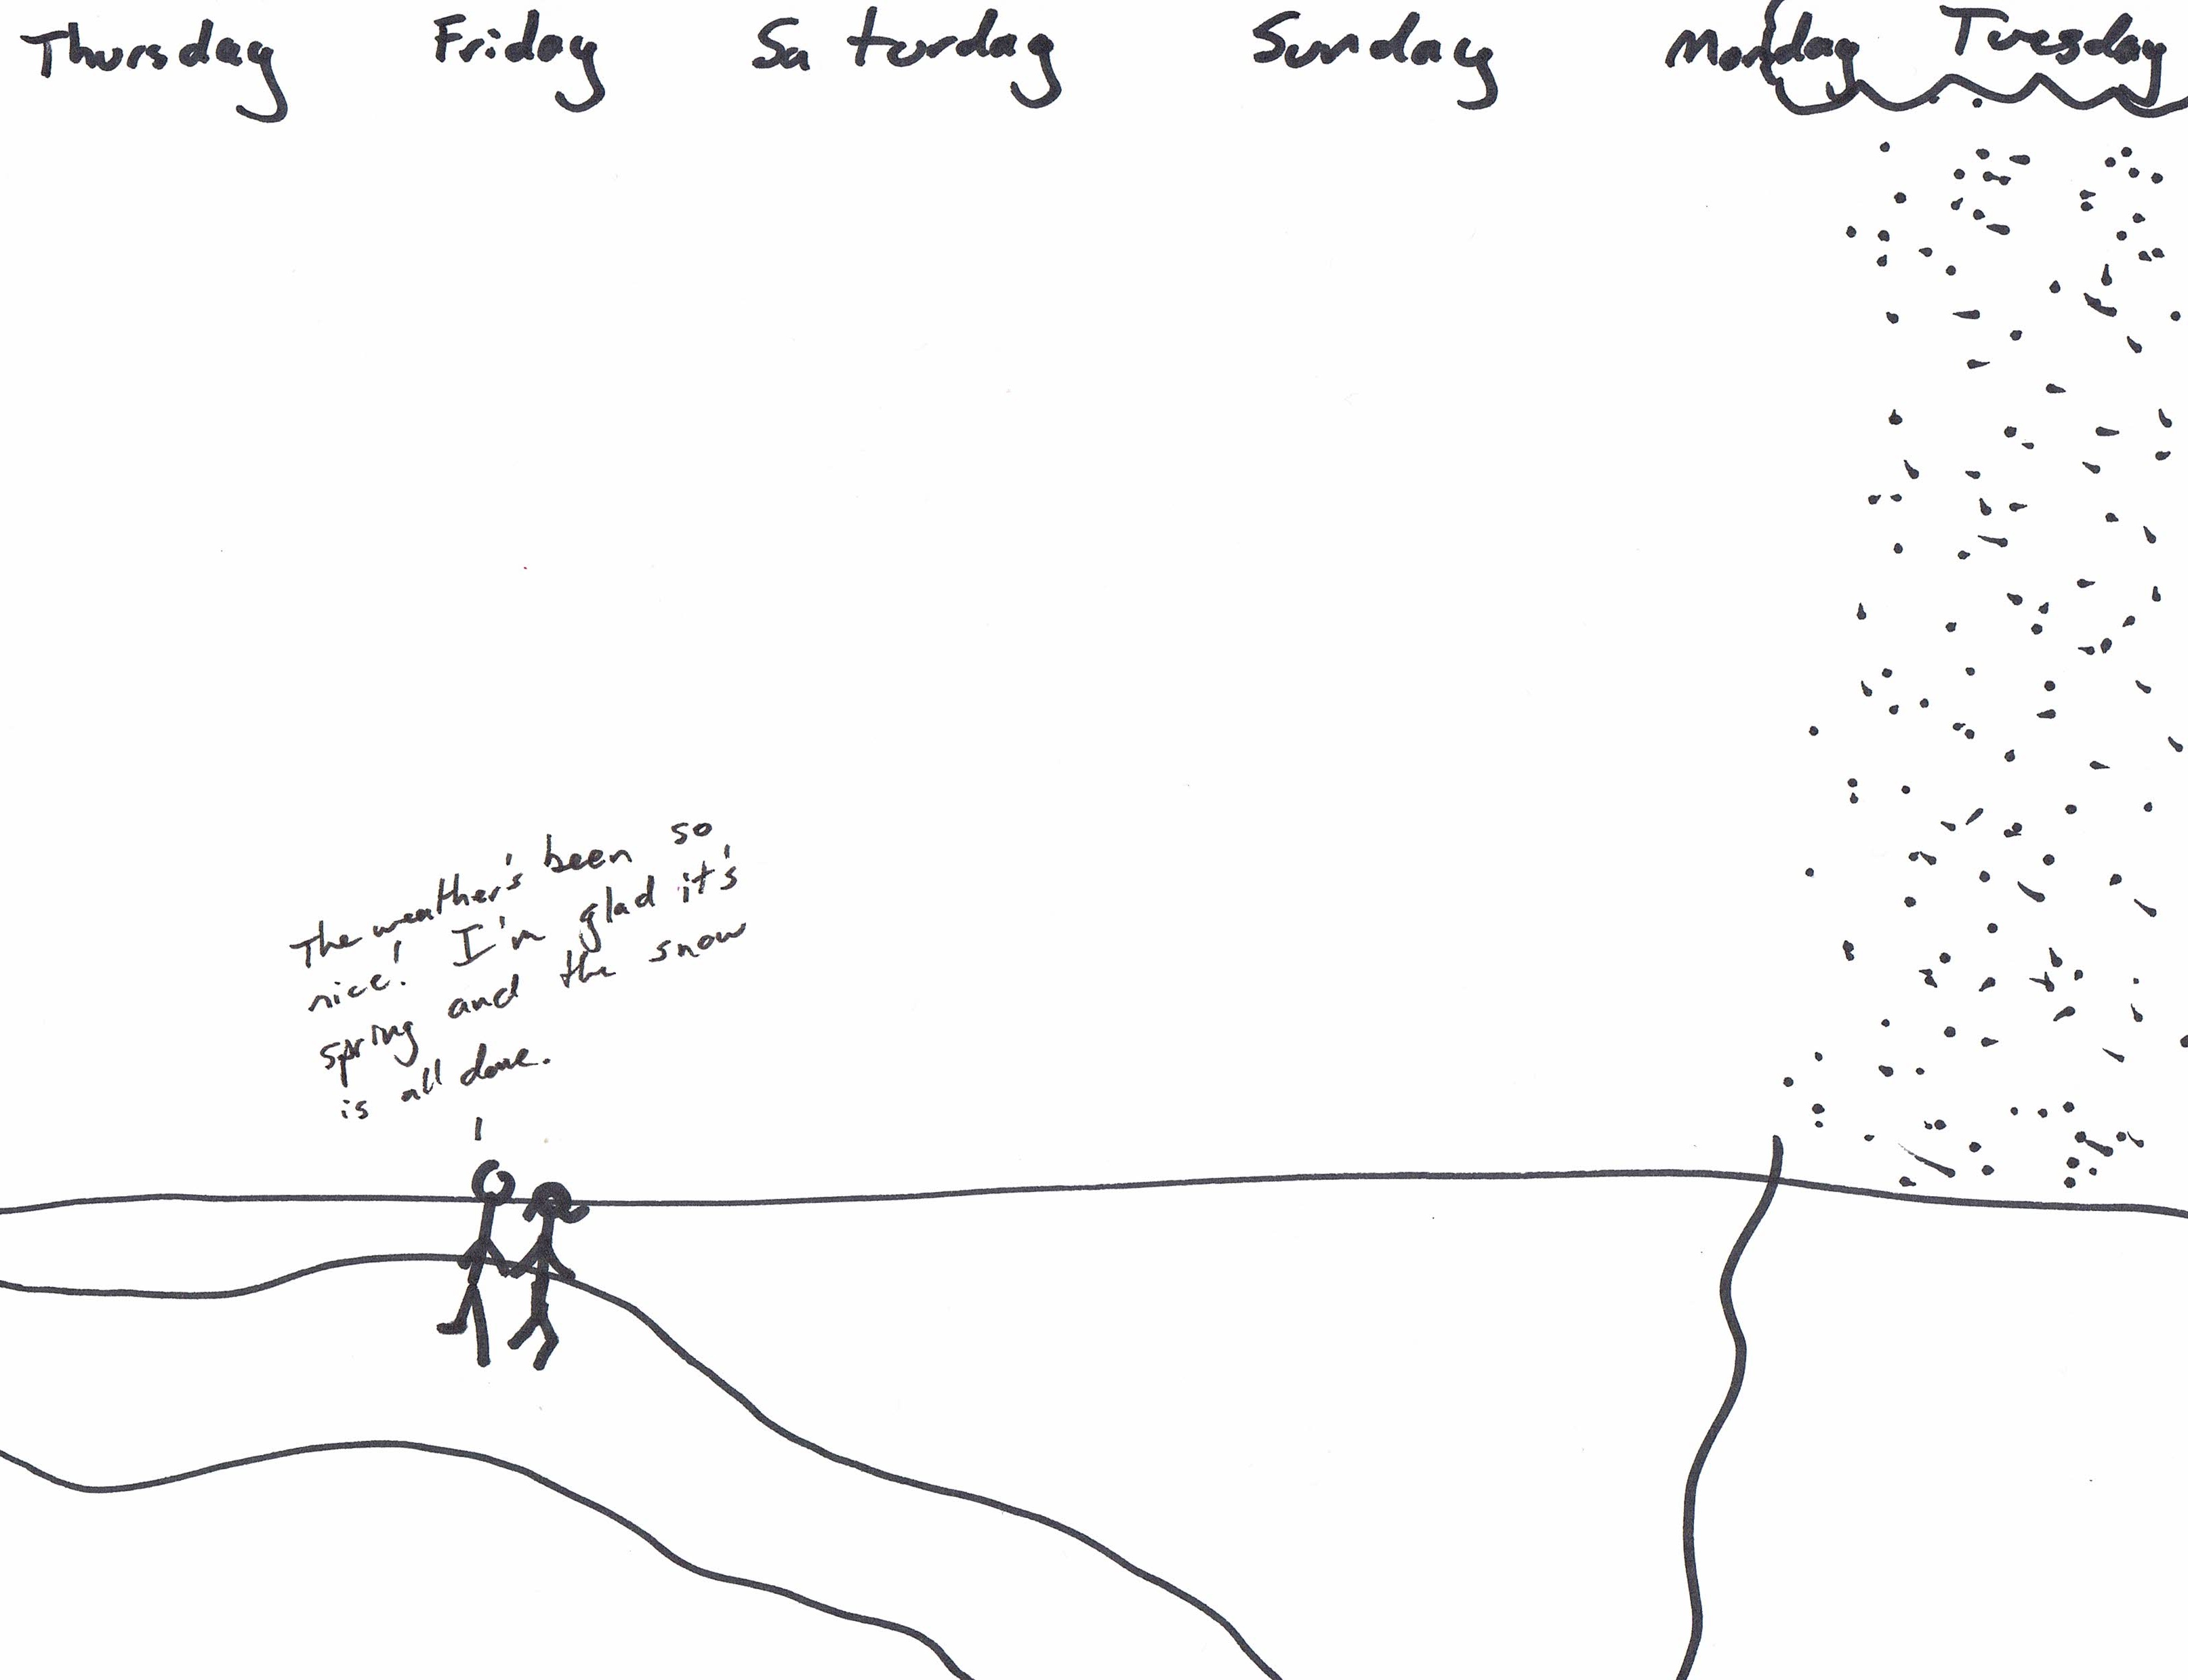 Thursday Friday Saturday Sunday Monday Tuesday
The weather's been so
nice! I'm glad it's
spring and the snow
is all done.